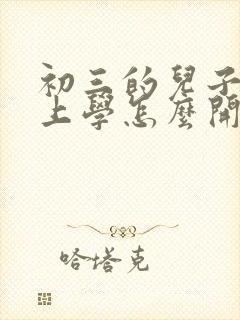 初三的兒子
上學怎麼開
哈塔克